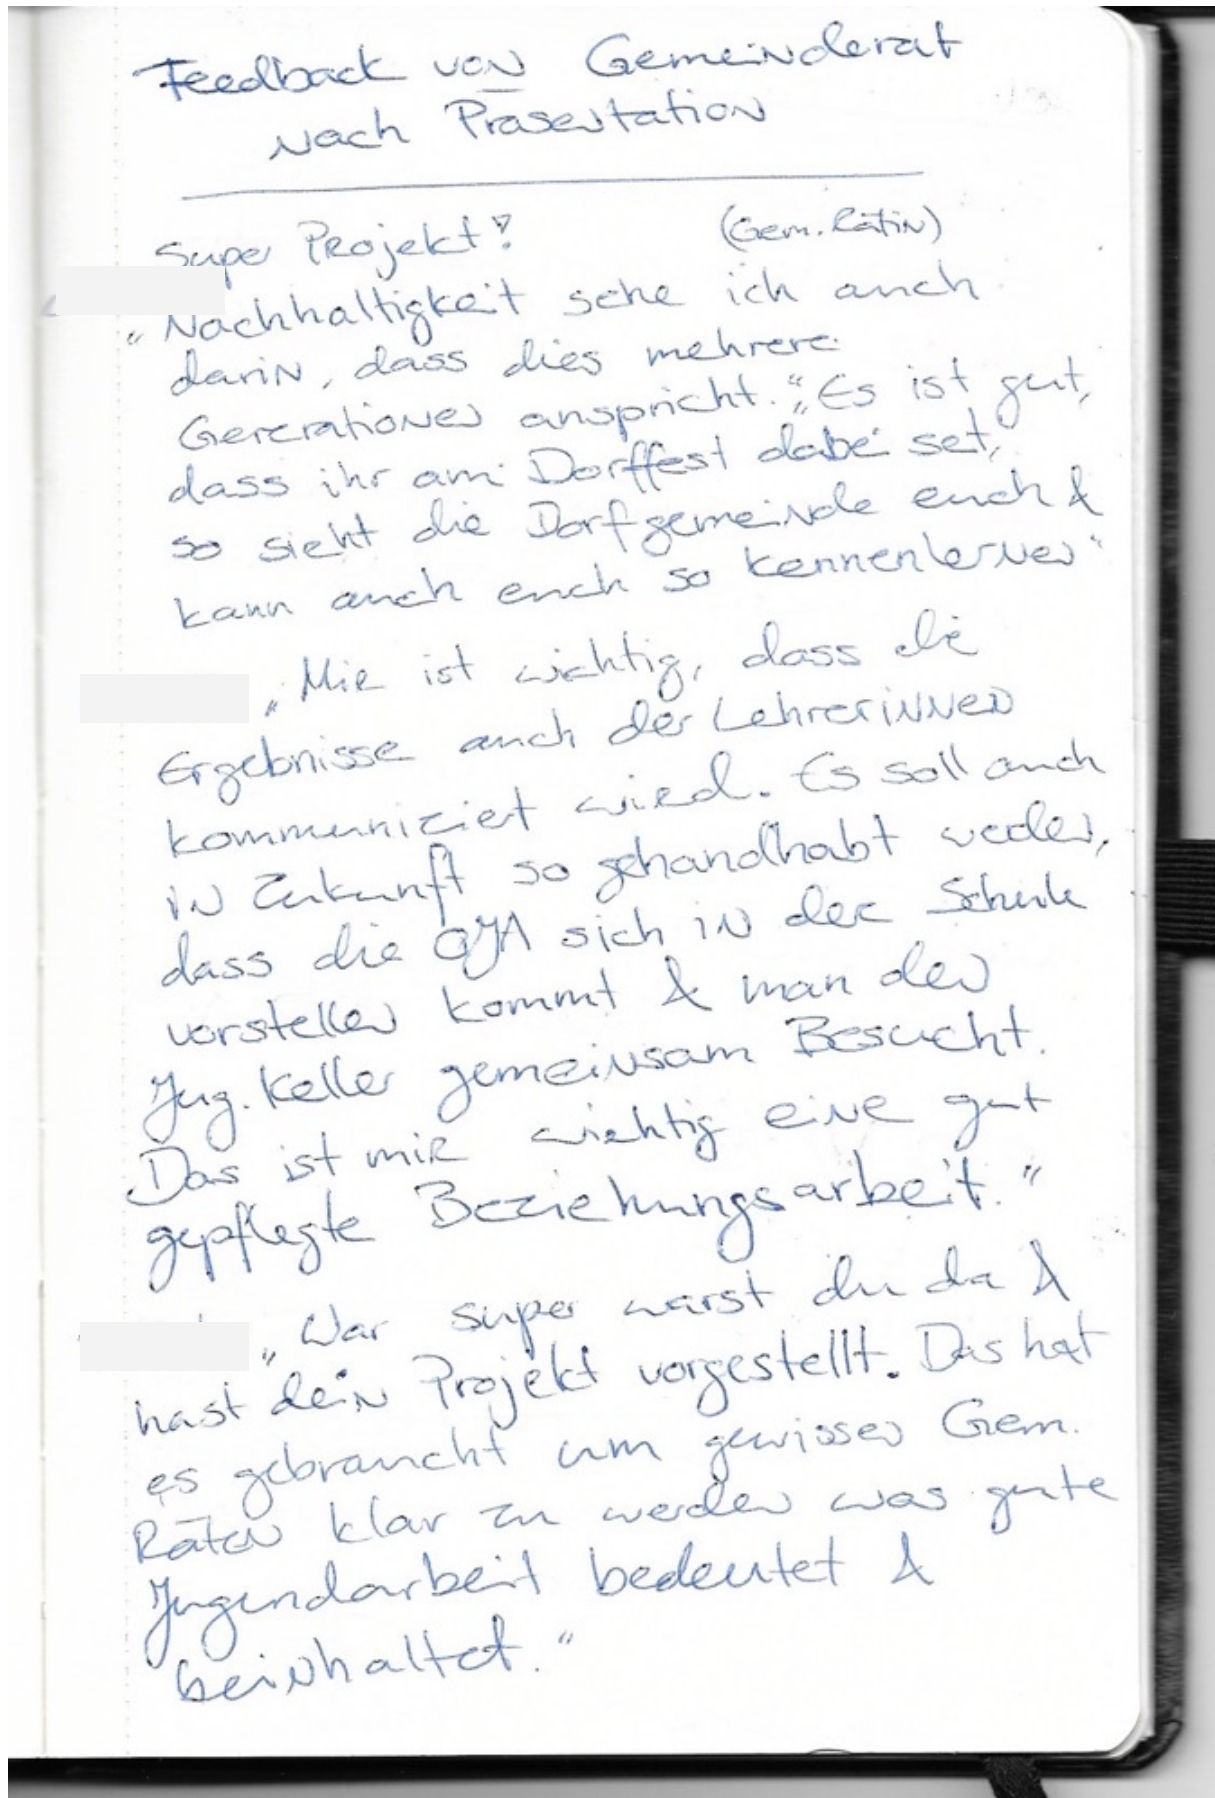 Feedback von Gemeinderat
nach Präsentation
Super Projekt! (Gem. Rätin)
„Nachhaltigkeit sehe ich auch
darin, dass dies mehrere
Generationen anspricht.“ „Es ist gut,
dass ihr am Dorffest dabei seit,
so sieht die Dorfgemeinde euch &
kann auch euch so kennenlernen“
„Mir ist wichtig, dass die
Ergebnisse auch der Lehrerinnen
kommuniziert wird. Es soll auch
in Zukunft so gehandhabt werden,
dass die OJA sich in der Schule
vorstellen kommt & man den
Jug. Keller gemeinsam Besucht.
Das ist mir wichtig eine gut
gepflegte Beziehungsarbeit.“
„War super warst du da &
hast dein Projekt vorgestellt. Das hat
es gebraucht um gewissen Gem.
Räten klar zu werden was gute
Jugendarbeit bedeutet &
beinhaltet.“